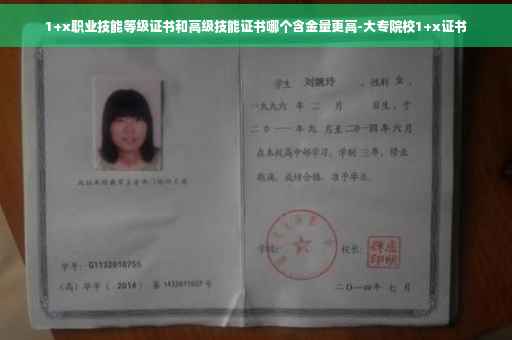 1+x职业技能等级证书和高级技能证书哪个含金量更高-大专院校1+x证书
学生 刘婉玲 ，性别 女 ，
一九九六 年 二 月 日生，于
二0一一年九 月至二0一四年六月
在本校高中部学习，学制 三年，修业
期满，成绩合格，准予毕业。
学校： 校长：
学号： G1132010755
（高）毕字（ 2014 ）第 1432011027 号
二〇一四年 七 月